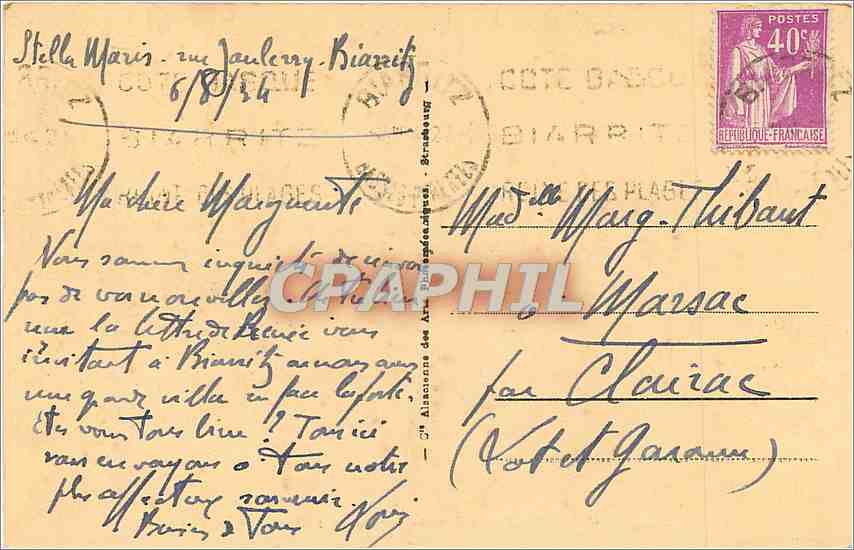 Stella Maris - rue Jaulerry - Biarritz
6/8/34
Ma chère Marguerite
Nous sommes de
pas de vos nouvelles.
la lettre de vous
invitant à Biarritz
une grande villa en face la poste.
Etes vous tous bien ? Tous ici
vous envoyons à tous notre
plus affectueux souvenir.
Baisers à Tous
Cie Alsacienne des Arts Photomécaniques. - Strasbourg
COTE BASQUE
BIARRITZ
REINE DES PLAGES
BIARRITZ
COTE BASQU
BIARRIT
REINE DES PLAGES
POSTES
40c
REPUBLIQUE-FRANCAISE
CPAPHIL
Madlle Marg. Thibaut
à Marsac
par Clairac
(Lot et Garonne)